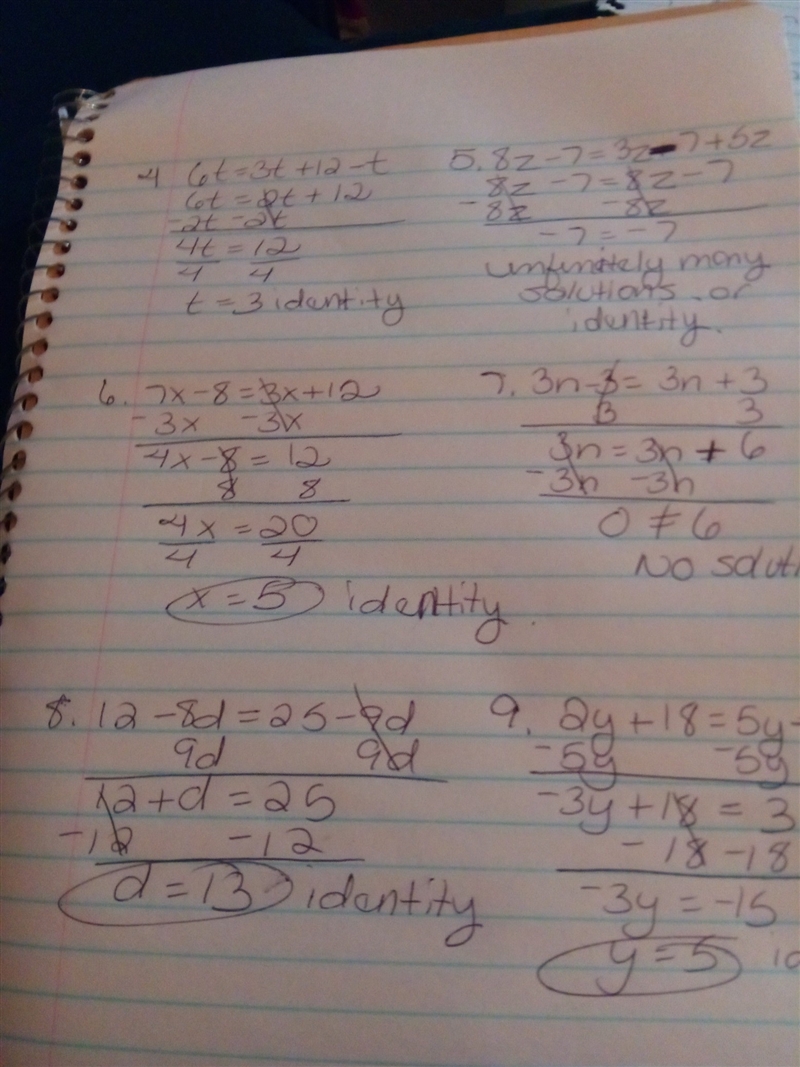 4 6t = 3t + 12 - t
6t = 2t + 12
-2t -2t
4t = 12
4 4
t = 3 identity
5. 8z - 7 = 3z - 7 + 5z
8z - 7 = 8z - 7
- 8z - 8z
-7 = -7
unfinitely many
solutions or
identity.
6. 7x - 8 = 3x + 12
- 3x - 3x
4x - 8 = 12
8 8
4x = 20
4 4
x = 5 identity.
7. 3n - 3 = 3n + 3
3 3
3n = 3n + 6
-3n -3n
0 ≠ 6
No soluti
8. 12 - 8d = 25 - 9d
9d 9d
12 + d = 25
-12 -12
d = 13 identity
9. 2y + 18 = 5y
-5y -5y
-3y + 18 = 3
- 18 - 18
-3y = -15
y = 5 id